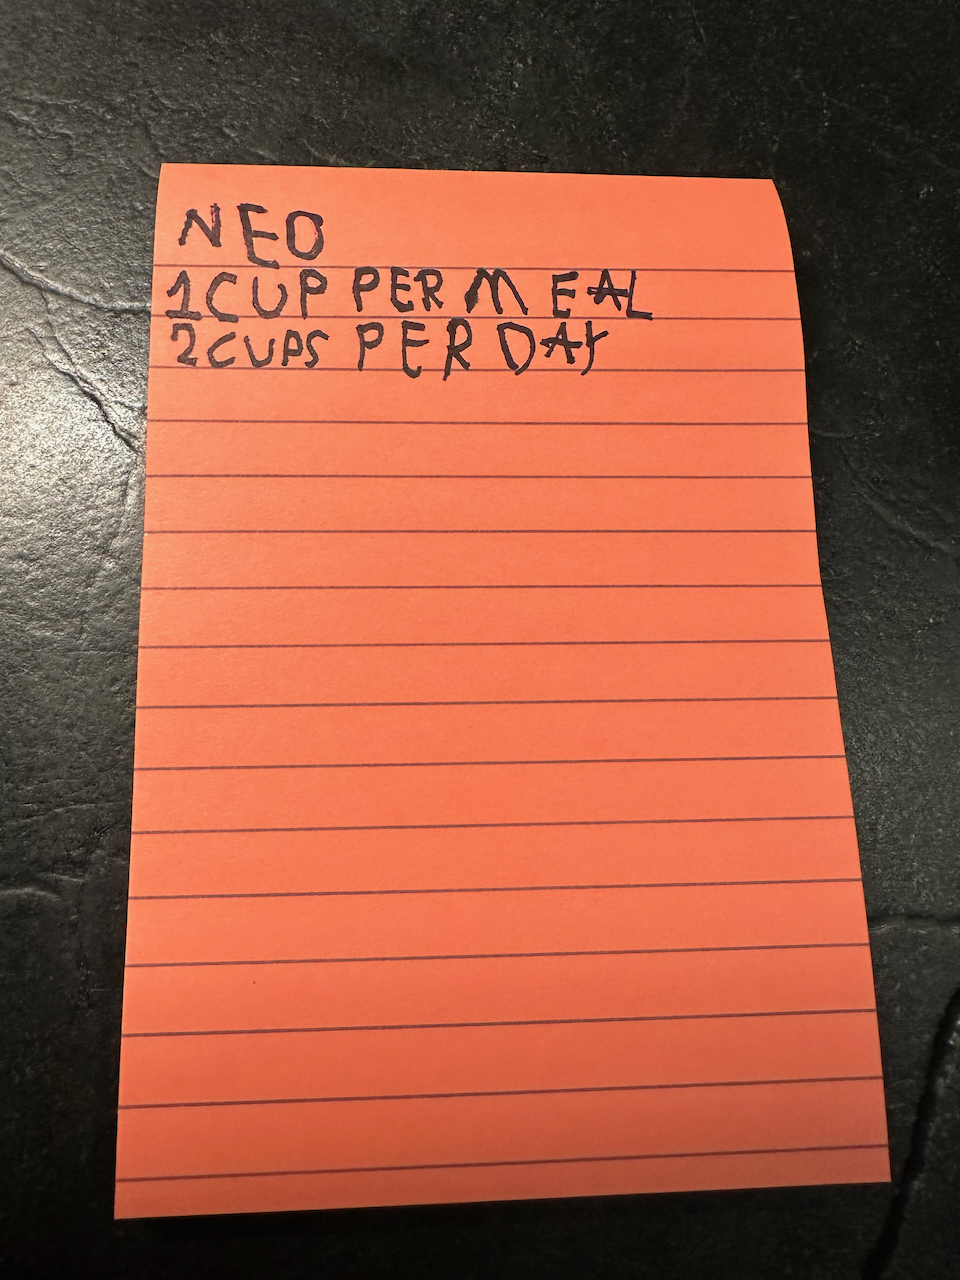 NEO
1 CUP PER MEAL
2 CUPS PER DAY